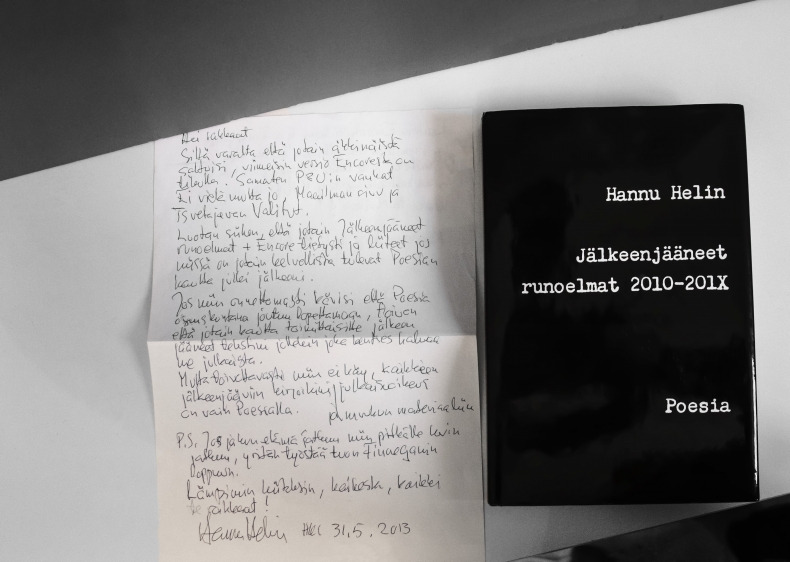 Hei rakkaat
Siltä varalta että jotain äkkinäistä
sattuisi, viimeisin versio Encoresta on
Samaten PRU:n
Ei vielä mutta jo, Maailman sivu ja
Tsvetajevan Valitut.
Luotan siihen, että jotain Jälkeenjääneet
runoelmat + Encore tietysti ja liitteet jos
niissä on jotain kelvollista tulevat Poesian
kautta julki jälkeeni.
Jos niin onnettomasti kävisi että Poesia
osuuskuntana joutuu lopettamaan, toivon
että jotain kautta toimittaisitte jälkeen
jääneet tekstini jollekin joka kenties haluaa
ne julkaista.
Mutta toivottavasti niin ei käy, kaikkeen
jälkeenjääviin kirjoihini julkaisuoikeus
on vain Poesialla. ja muuhun materiaaliin
P.S. Jos ja kun elämä jatkuu niin pitkälle kuin
jatkuu, yritän työstää tuon Finneganin
loppuun.
Lämpimin kiitoksin, kaikesta, kaikki
te rakkaat!
Hannu Helin HKI 31.5.2013
Hannu Helin
Jälkeenjääneet
runoelmat 2010-201X
Poesia